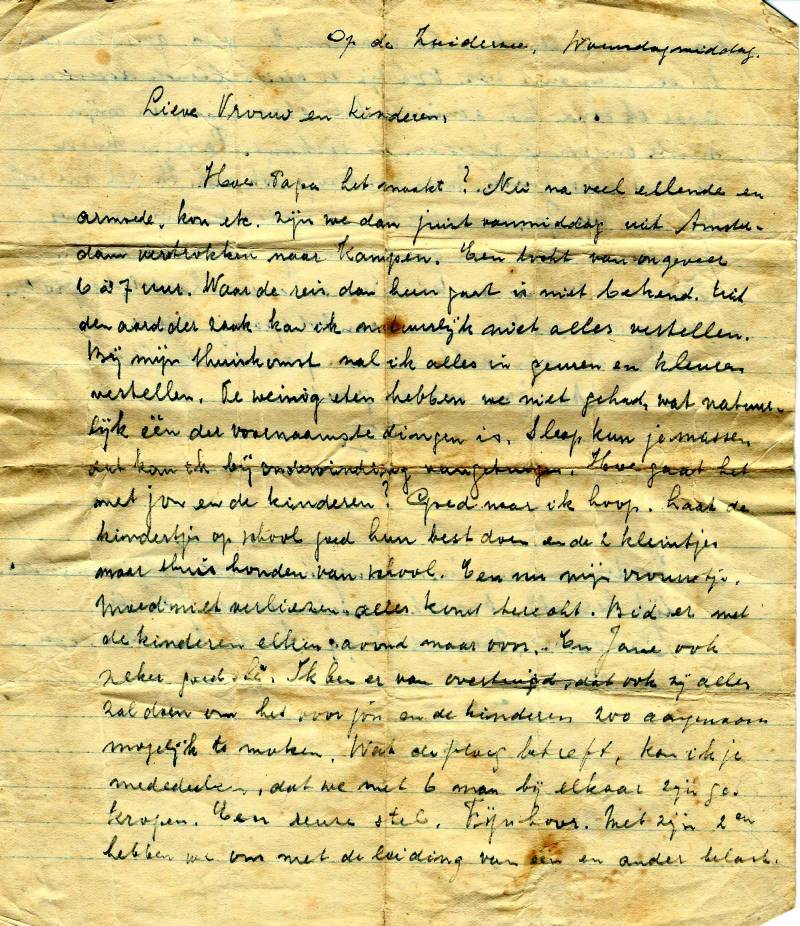 Op de Zuidersee, Woensdagmiddag.
Lieve Vrouw en kinderen,
Hoe Papa het maakt? Nu na veel ellende en
armoede, kou etc. zijn we dan juist vanmiddag uit Amster-
dam vertrokken naar Kampen. Een tocht van ongeveer
6 à 7 uur. Waar de reis dan heen gaat is niet bekend. Uit
den aard der zaak kan ik natuurlijk niet alles vertellen.
Bij mijn thuiskomst zal ik alles in geuren en kleuren
vertellen. Te weinig eten hebben we niet gehad, wat natuur-
lijk één der voornaamste dingen is. Slaap kun je missen
dat kan ik bij ondervinding. Hoe gaat het
met jou en de kinderen? Goed naar ik hoop. Laat de
kindertjes op school goed hun best doen en de 2 kleintjes
maar thuis houden van school. En nu mijn vrouwtje.
Moed niet verliezen, alles komt terecht. Bid er met
de kinderen elken avond maar voor. En ook
zeker goed. Ik ben er van overtuigd, dat ook zij alles
zal doen om het voor jou en de kinderen zoo aangenaam
mogelijk te maken. Wat de ploeg betreft, kan ik je
mededeelen, dat we met 6 man bij elkaar zijn ge-
kropen. Een reuze stel. Fijn hoor. Met zijn 2en
hebben we ons met de leiding van één en ander belast.